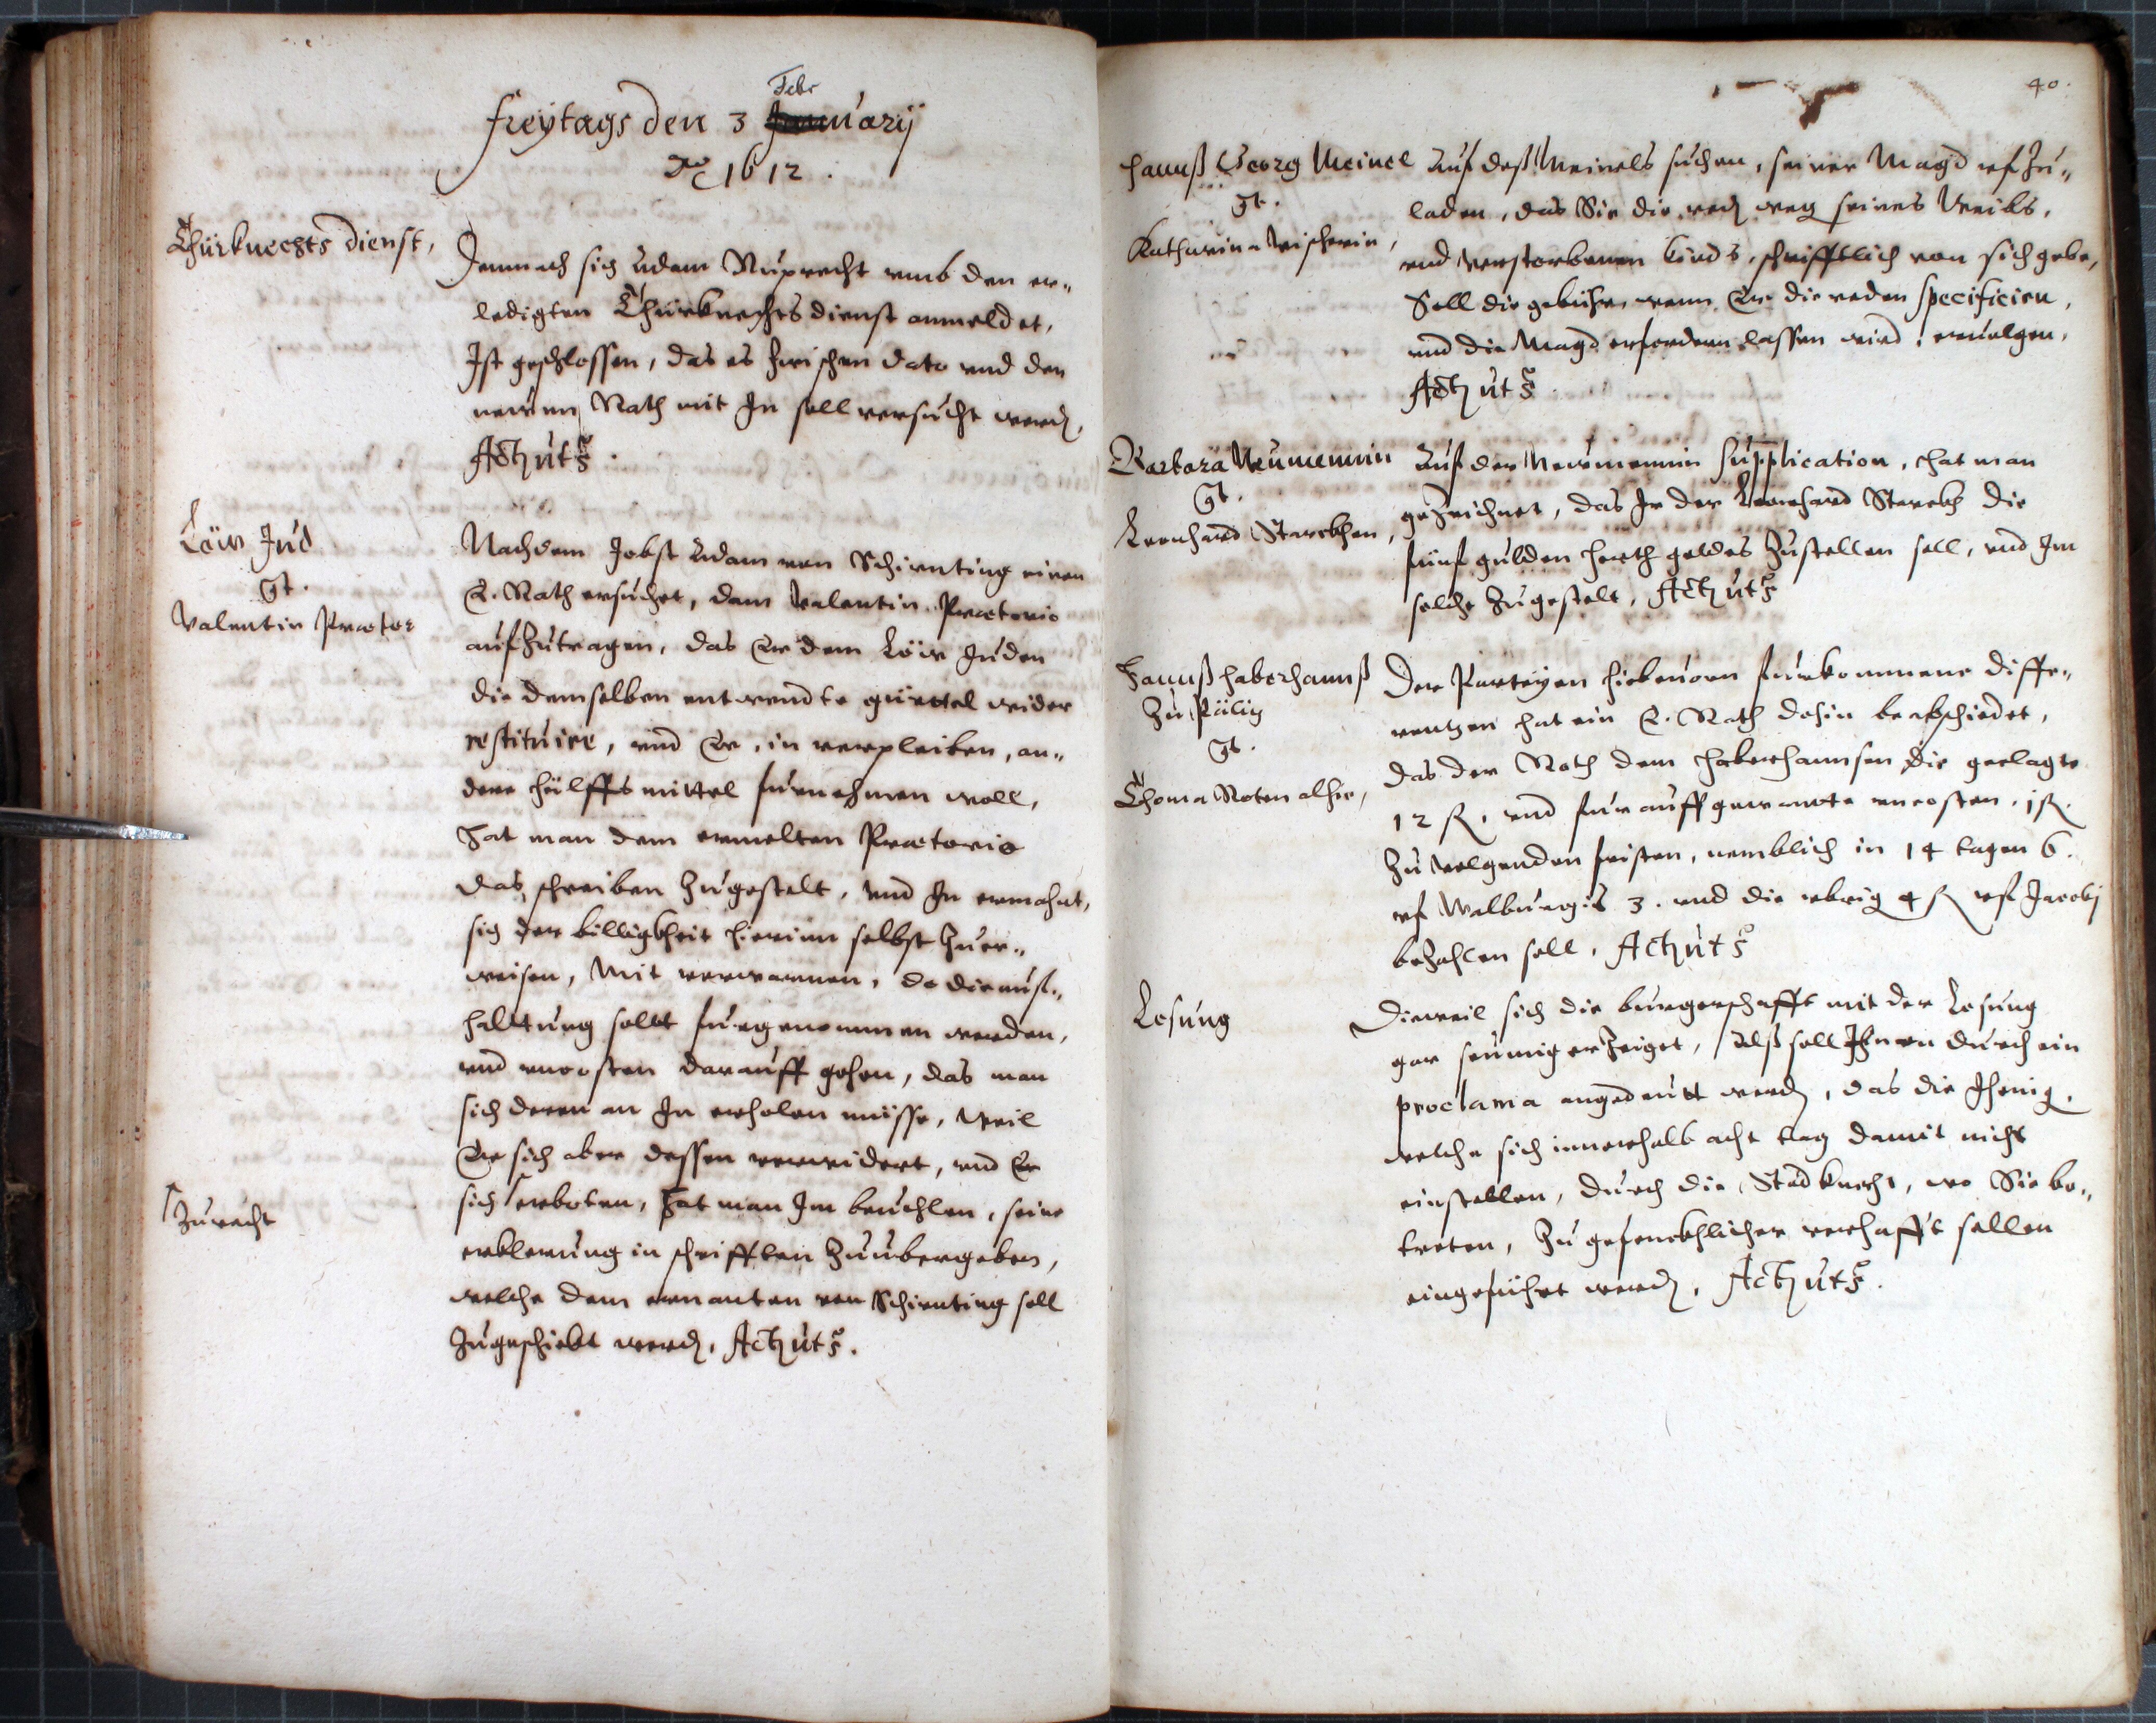 Freÿtags den 3 Febr Januarij
Aō 1612.
Thürknechts dienst,
Demnach sich Adam Ruprecht vmb den er„
ledigten Thürknechts dienst anmeldet,
Ist geschlossen, das es zwischen dato vnd den
newen Rath mit Im soll versucht werd,
Act. ut s.
Löw Jud
Gt.
Valentin Praetor
Nachdem Jobst Adam von Schirnting einen
E. Rath ersuchet, dem Valentin Praetorio
aufzutragen, das Er dem Löw Juden
die demselben entwendte gürttel wider
restituire, vnd Er, in verpleiben, an„
dere hülffs mittel furnehmen woll,
Hat man dem ermelten Praetorio
das schreiben zugestelt, vnd In ermahnt,
sich der billigkheit hierinn selbst zuer„
weisen, Mit verwarnen, do die auß„
halttung sollt furgenommen werden,
vnd vncosten darauff gehen, das man
sich deren an Im erholen müsse, Weil
Er sich aber dessen verwidert, vnd Er
sich ↑ erboten, Hat man Im beuohlen, seine
↑ Zu recht
erklerung in schrifften zuubergeben,
welche dem ernanten von Schirnting soll
zugeschickt werd, Act. ut s.
40.
Hannß Georg Meinel
Gt.
Katharina Fischerin,
Auf deß Meinels suchen, seiner Magd vf zu„
laden, das Sie die red weg seines Weibs,
vnd verstorbenen kinds, schrifftlich von sich gebe,
Soll die gebühr, wenn Er die reden specificirn,
vnd die Magd erfordern lassen wird, eruolgen,
Act. ut s.
Barbara Neumennin
Gt.
Leonhard Starckhen,
Auf der Newmennin Supplication, hat man
gezeichnet, das Ir der Leonhard Starckh die
fünf gulden heeth geldes zustellen soll, vnd Im
solche zugestelt, Act. ut s.
Hannß Haberhannß
zu Pilig
Gt.
Thoma Roten alhie,
Der Parteyen hieuorn furkommene diffe„
rentzen hat ein E. Rath dahin beabschiedet,
das der Roth dem Haberhannsen die geclagte
12 fl, vnd fur auffgewante vncosten, 1 fl.
zu volgenden fristen, nemblich in 14 tagen 6.
vf Walburgis 3. vnd die vbrig 4 fl vf Jacobj
bezahlen soll, Act. ut s.
Losung
Dieweil sich die burgerschafft mit der Losung
gar seumig erzeiget, Alß soll Ihnen durch ein
proclama angedeutt werd, das die Ihenig,
welche sich innerhalb acht tag damit nicht
einstellen, durch die Stadknecht, wo Sie be„
tretten, zu gefenckhlicher verhafft sollen
eingeführt werd, Act. ut s.